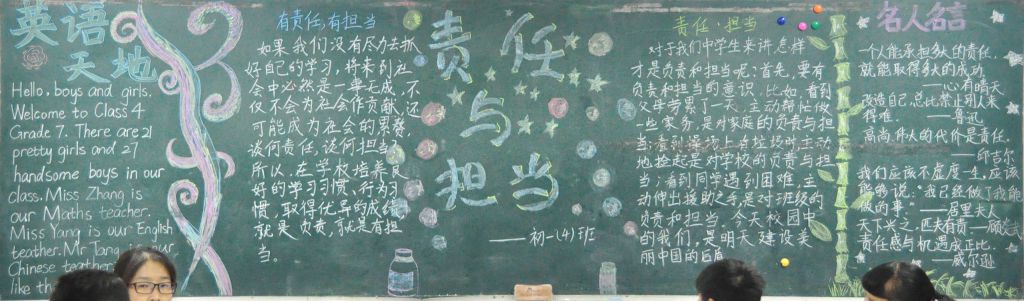 英语
天地
Hello, boys and girls.
Welcome to Class 4
Grade 7. There are 21
pretty girls and 27
handsome boys in our
class. Miss Zhang is
our Maths teacher.
Miss Yang is our English
teather. Mr Tang is our
Chinese teather
like th
有责任,有担当
如果我们没有尽力去抓
好自己的学习,将来到社
会中必然是一事无成,不
仅不会为社会作贡献,还
可能成为社会的累赘,
谈何责任,谈何担当?
所以,在学校培养良
好的学习习惯、行为习
惯,取得优异的成绩,
就是负责,就是有担
当。
责任
与
担当
——初一(4)班
责任·担当
对于我们中学生来讲,怎样
才是负责和担当呢?首先,要有
负责和担当的意识,比如,看到
父母劳累了一天,主动帮忙做
一些家务,是对家庭的负责与担
当;看到操场上有垃圾时,主动
地捡起是对学校的负责与担
当;看到同学遇到困难,主
动伸出援助之手,是对班级的
负责和担当。今天校园中
的我们,是明天建设美
丽中国的巨盾
名人名言
一个人能承担多大的责任,
就能取得多大的成功
——心有晴天
改造自己,总比禁止别人来
得难。——鲁迅
高尚伟大的代价是责任。
——邱吉尔
我们应该不虚度一生,应该
能够说:"我已经做了我能
做的事"——居里夫人
天下兴亡,匹夫有责——顾炎武
责任感与机遇成正比。
——威尔逊